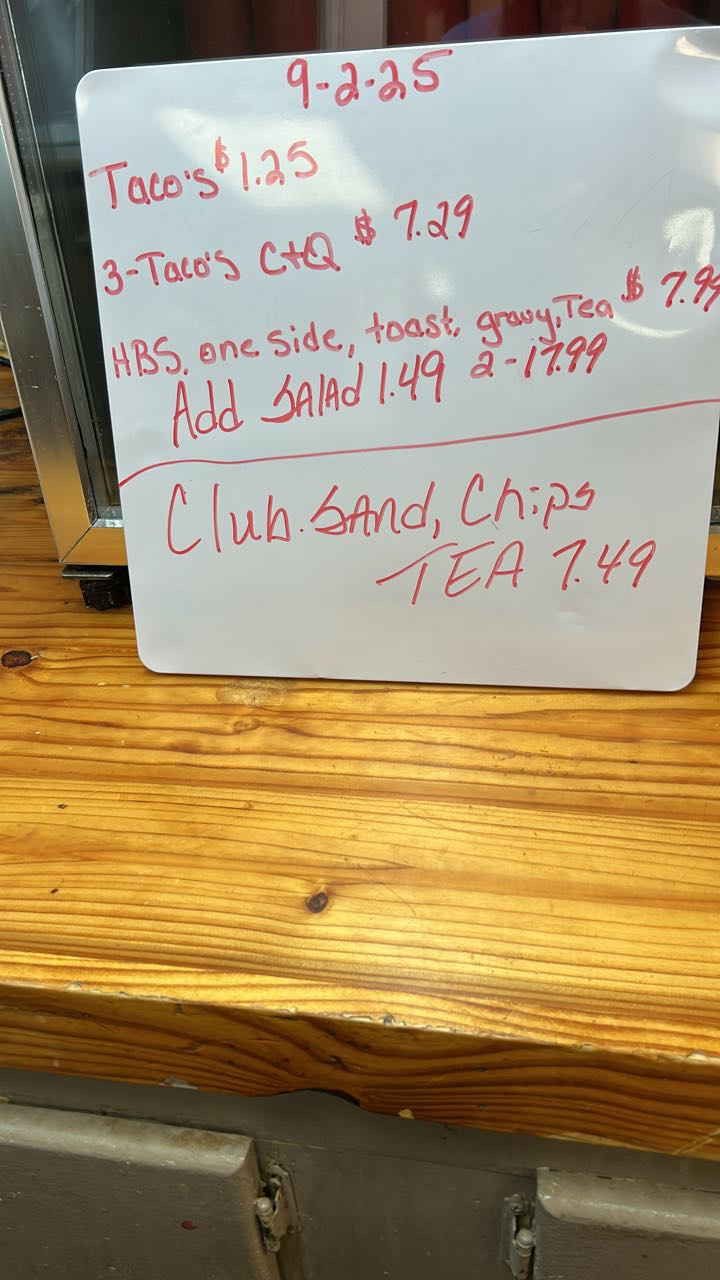 9-2-25
Taco's $1.25
3-Taco's C+Q $ 7.29
HBS, one side, toast, gravy, Tea $ 7.99
Add SALAD 1.49 2-17.99
Club. SAND, Chips
TEA 7.49